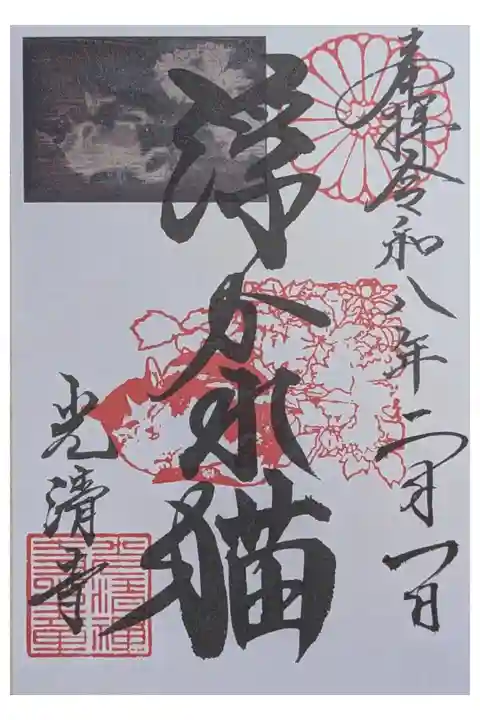 奉拝 令和八年二月一日
浮かれ猫
光清寺